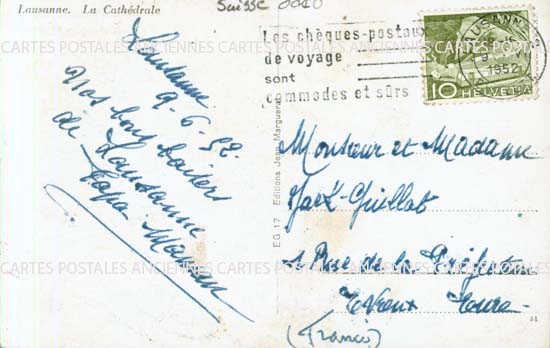 Lausanne. La Cathédrale
Suisse 0010
Les chèques-postaux
de voyage
sont
commodes et sûrs
LAUSANNE
1952
10 HELVETIA
Lausanne
9-6-52.
Nos bons baisers
de Lausanne
Papa Maman
EG 17 Editions Jean Marguerat
Monsieur et Madame
Jack-Guillat
1 Rue de la Préfecture
Evreux Eure
(France)
51
CARTES POSTALES ANCIENNES CARTES POSTALES ANCIENNES CARTES POSTALES